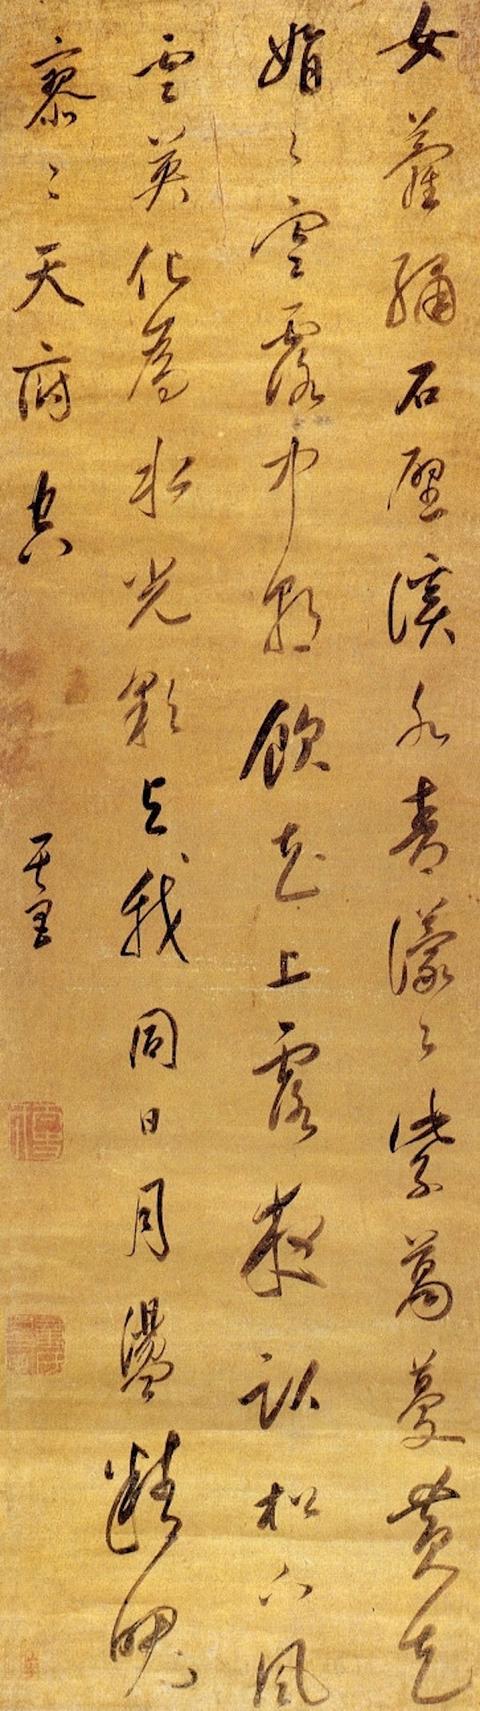 女蘿繡石壁溪水青濛〻紫葛蔓黃花
娟〻寒露中朝飲花上露夜臥松下風
雲英化為水光彩與我同日月盪精魄
寥〻天府空 其昌